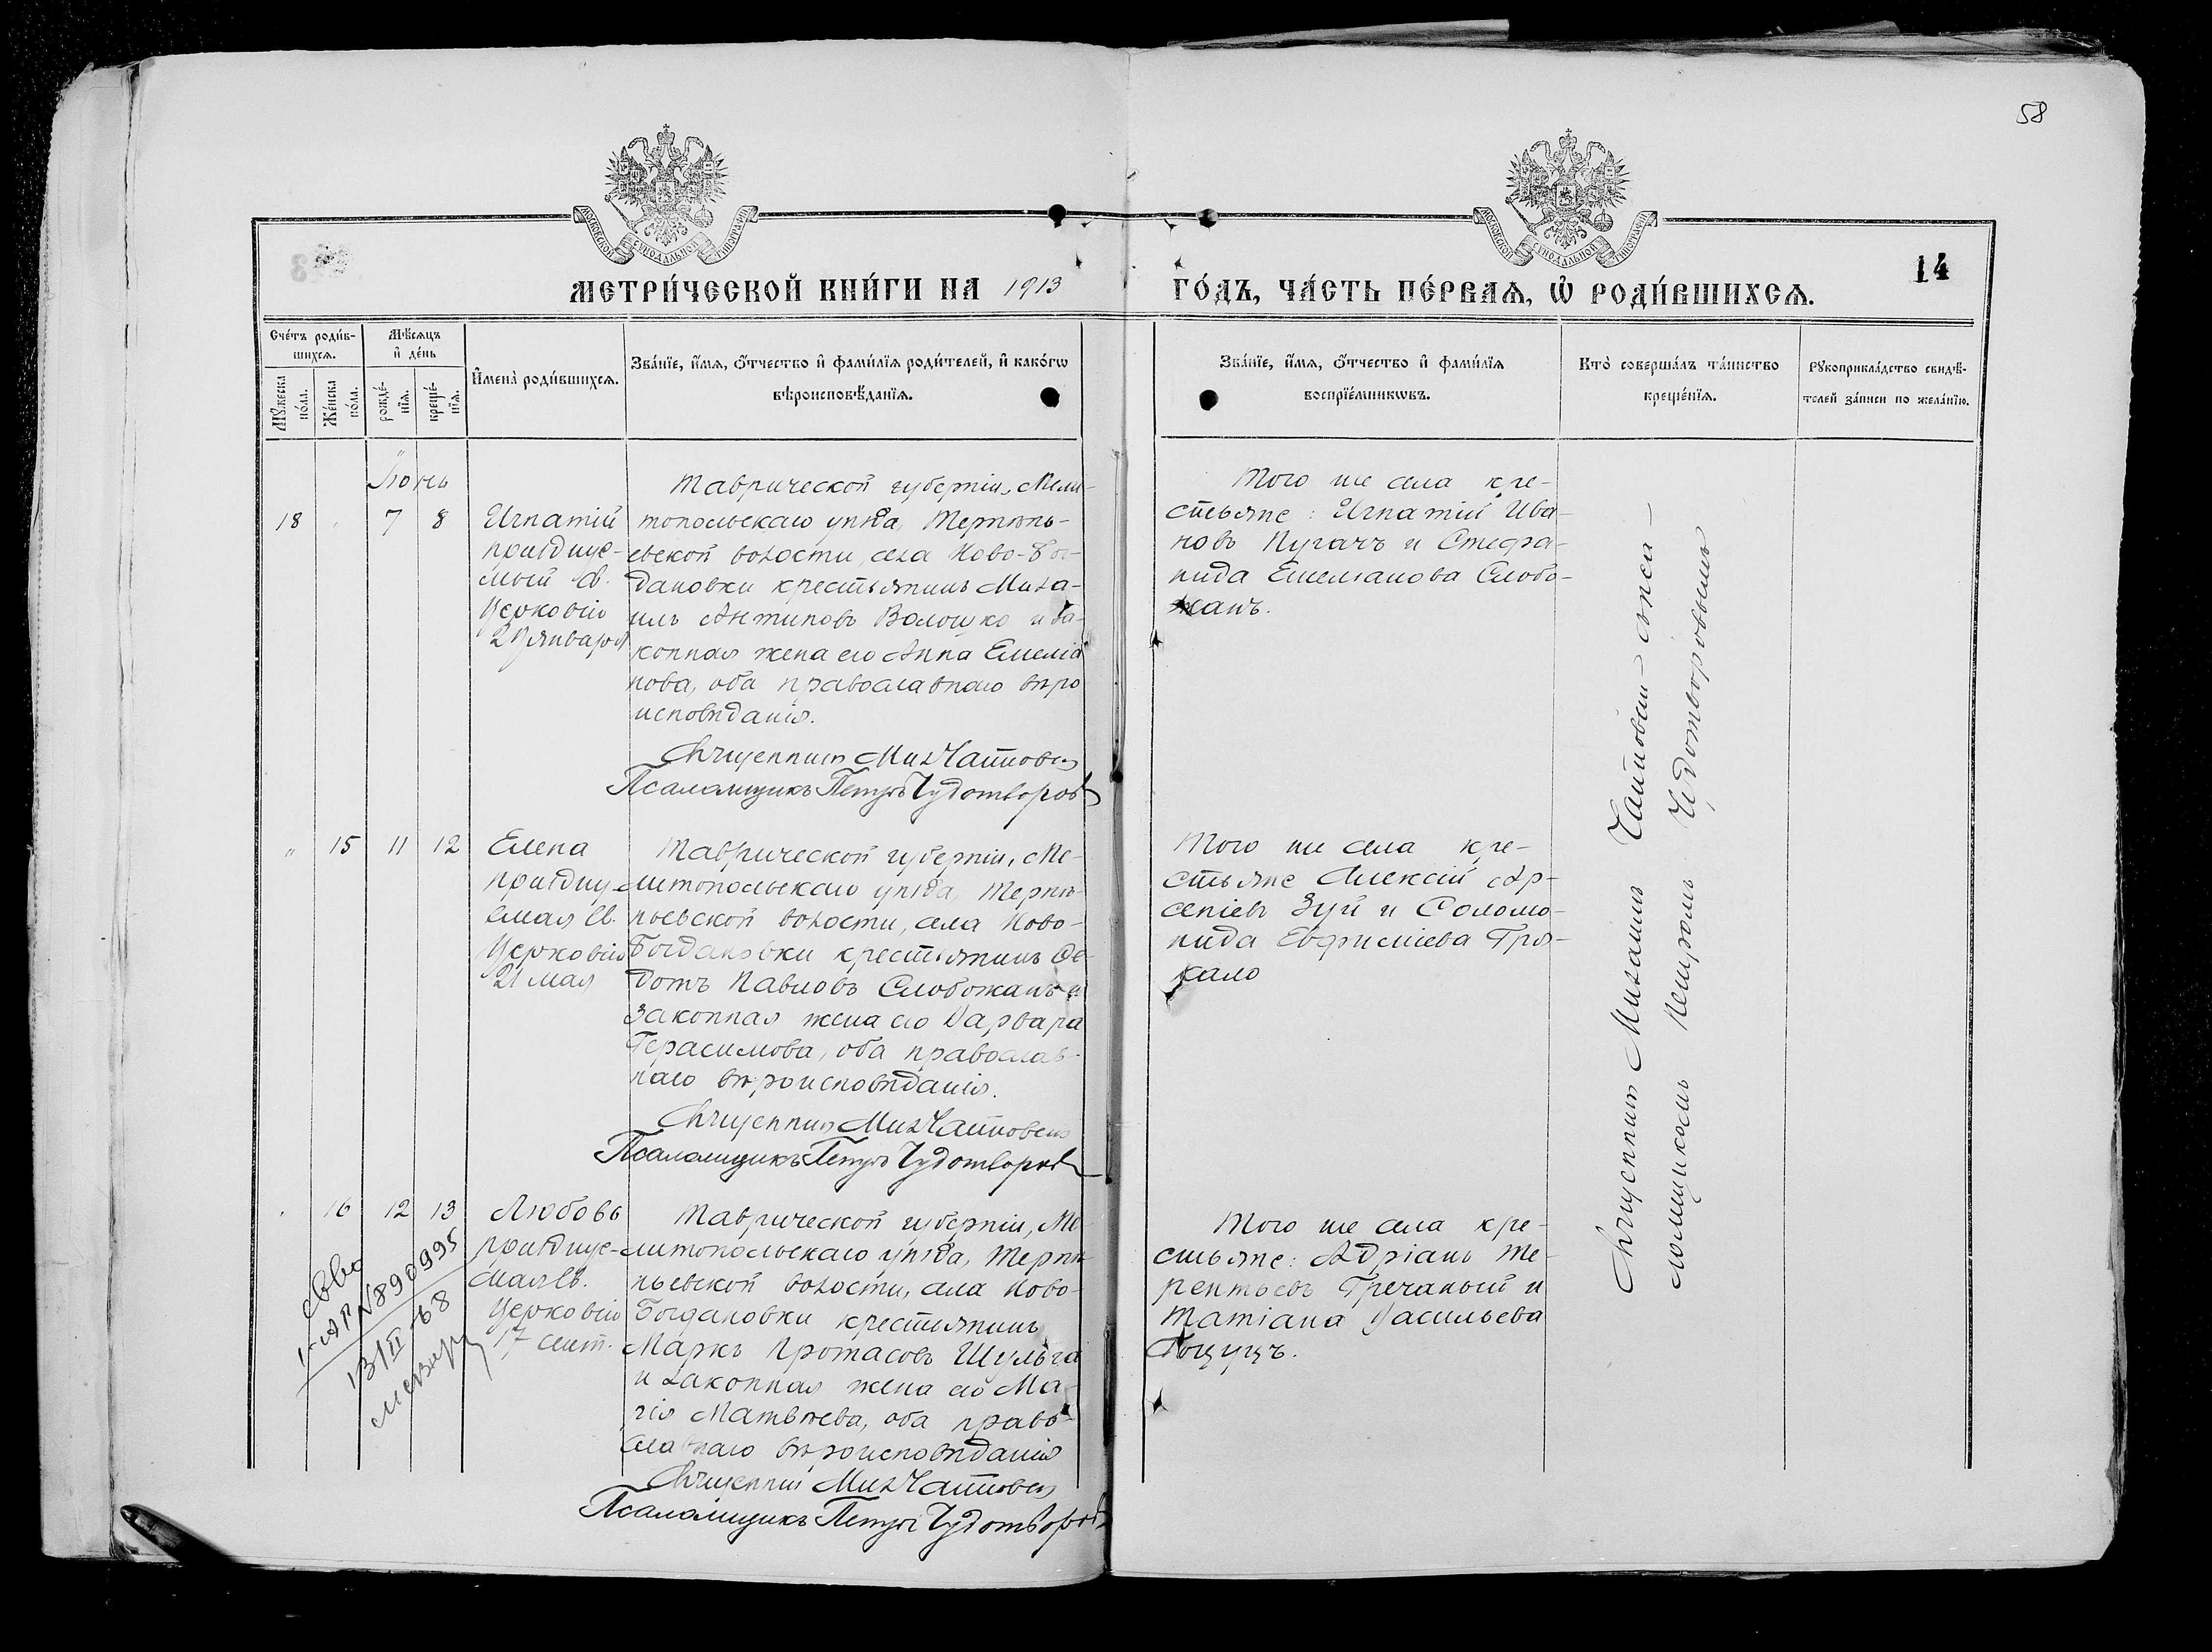 58
МОСКОВСКОЙ СУНОДАЛЬНОЙ ТИПОГРАФІИ
МОСКОВСКОЙ СУНОДАЛЬНОЙ ТИПОГРАФІИ
14
МЕТРИ́ЧЕСКОЙ КНИ́ГИ НА 1913 ГО́ДЪ, ЧА́СТЬ ПЕ́РВАѦ, Ѡ҆ РОДИ́ВШИХСѦ.
Сче́тъ роди́в-
шихсѧ.
Мꙋ́жеска
по́ла.
Же́нска
по́ла.
Мѣ́сѧцъ
и҆ де́нь
рожде́-
нїѧ.
креще́-
нїѧ.
И҆мена̀ роди́вшихсѧ.
Зва́нїе, и҆́мѧ, ѻ҆́тчество и҆ фами́лїѧ роди́телей, и҆ како́гѡ
вѣроисповѣ́данїѧ.
Зва́нїе, и҆́мѧ, ѻ҆́тчество и҆ фами́лїѧ
воспрїе́мникѡвъ.
Кто̀ соверша́лъ та́инство
креще́нїѧ.
Рꙋкоприкла́дство свидѣ́-
телей за́писи по жела́нїю.
Іюнь
18
7
8
Игнатій
празднуе-
мый св.
Церковію
29 января
Таврической губерніи, Мели-
топольскаго уѣзда, Терпѣнь-
евской волости, села Ново-Бог-
дановки крестьянинъ Миха-
илъ Антиповъ Волошко и за-
конная жена его Анна Емеліа
нова, оба православнаго вѣро
исповѣданія.
Священникъ Мих
Псаломщикъ Петръ Чудотворовъ
Того же села кре-
стьяне: Игнатій Ива-
новъ Пугачъ и Стефа-
нида Емельянова Слобо-
жанъ.
"
15
11
12
Елена
праздну-
емая св.
Церковію
21 мая
Таврической губерніи, Ме-
литопольскаго уѣзда, Терпѣ-
ньевской волости, села Ново-
Богдановки крестьянинъ Ѳе-
дотъ Павловъ Слобожанъ и
законная жена его Варвара
Герасимова, оба православ-
наго вѣроисповѣданія.
Священникъ Мих
Псаломщикъ Петръ Чудотворовъ
Того же села кре-
стьяне Алексій Ар-
сеніевъ Зуй и Соломо-
нида Евфиміева Гря-
кало
16
12
13
Любовь
празднуе-
мая св.
Церковію
17 сент.
Таврической губерніи, Ме-
литопольскаго уѣзда, Терпѣ-
ньевской волости, села Ново-
Богдановки крестьянинъ
Маркъ Протасовъ Шульга
и законная жена его Ма-
рія Матвѣева, оба право-
славнаго вѣроисповѣданія
Священникъ Мих
Псаломщикъ Петръ Чудотворовъ
Того же села кре-
стьяне: Адріанъ Те-
рентьевъ Гречаный и
Татіана Васильева
Священникъ Михаилъ
Псаломщикомъ Петромъ Чудотворовымъ
№890995
13/II-68